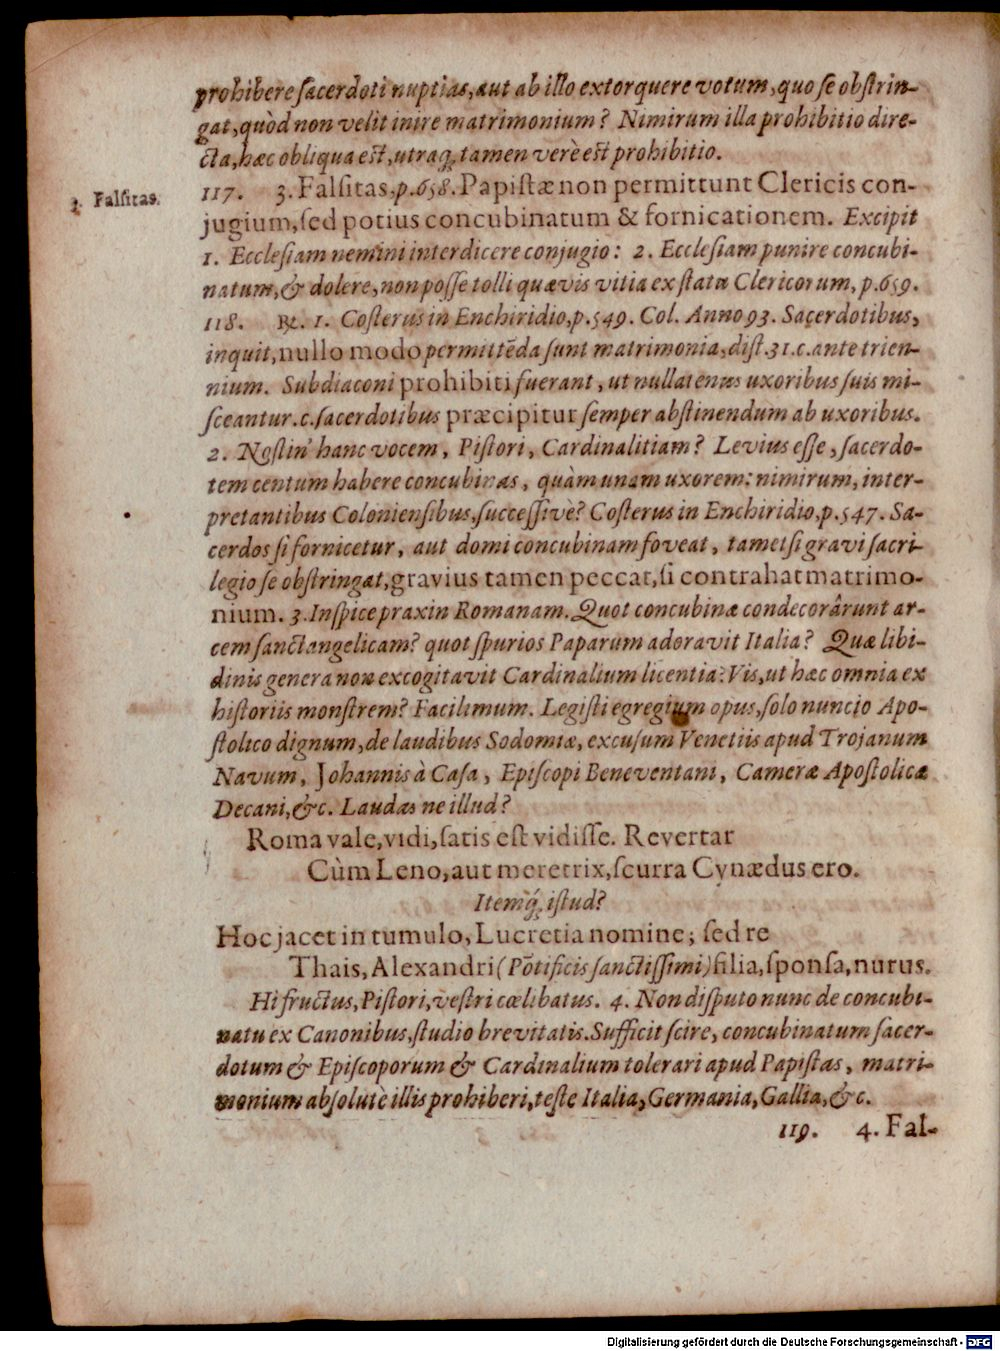 prohibere sacerdoti nuptias, aut ab illo extorquere votum, quo se obstrin-
gat, quòd non velit inire matrimonium? Nimirum illa prohibitio dire-
cta, hæc obliqua est, utraq; tamen verè est prohibitio.
3. Falsitas.
117. 3. Falsitas, p. 658. Papistæ non permittunt Clericis con-
jugium, sed potius concubinatum & fornicationem. Excipit
1. Ecclesiam nemini interdicere conjugio: 2. Ecclesiam punire concubi-
natum, & dolere, non posse tolli quævis vitia ex statu Clericorum, p. 659.
118. ℞. 1. Costerus in Enchiridio, p. 549. Col. Anno 93. Sacerdotibus,
inquit, nullo modo permittēda sunt matrimonia, dist. 31. c. ante trien-
nium. Subdiaconi prohibiti fuerant, ut nullatenus uxoribus suis mi-
sceantur. c. sacerdotibus præcipitur semper abstinendum ab uxoribus.
2. Nostin' hanc vocem, Pistori, Cardinalitiam? Levius esse, sacerdo-
tem centum habere concubinas, quàm unam uxorem: nimirum, inter-
pretantibus Coloniensibus, successivè? Costerus in Enchiridio, p. 547. Sa-
cerdos si fornicetur, aut domi concubinam foveat, tametsi gravi sacri-
legio se obstringat, gravius tamen peccat, si contrahat matrimo-
nium. 3. Inspice praxin Romanam. Quot concubinæ condecorârunt ar-
cem sanctangelicam? quot spurios Paparum adoravit Italia? Quæ libi-
dinis genera non excogitavit Cardinalium licentia? Vis, ut hæc omnia ex
historiis monstrem? Facilimum. Legisti egregium opus, solo nuncio Apo-
stolico dignum, de laudibus Sodomiæ, excusum Venetiis apud Trojanum
Navum, Johannis à Casa, Episcopi Beneventani, Cameræ Apostolicæ
Decani, &c. Laudas ne illud?
Roma vale, vidi, satis est vidisse. Revertar
Cùm Leno, aut meretrix, scurra Cynædus ero.
Itemq́; istud?
Hoc jacet in tumulo, Lucretia nomine; sed re
Thais, Alexandri (Pōtificis sanctissimi) filia, sponsa, nurus.
Hi fructus, Pistori, vestri cælibatus. 4. Non disputo nunc de concubi-
natu ex Canonibus, studio brevitatis. Sufficit scire, concubinatum sacer-
dotum & Episcoporum & Cardinalium tolerari apud Papistas, matri-
monium absolutè illis prohiberi, teste Italia, Germania, Gallia, &c.
119. 4. Fal-
Digitalisierung gefördert durch die Deutsche Forschungsgemeinschaft - DFG